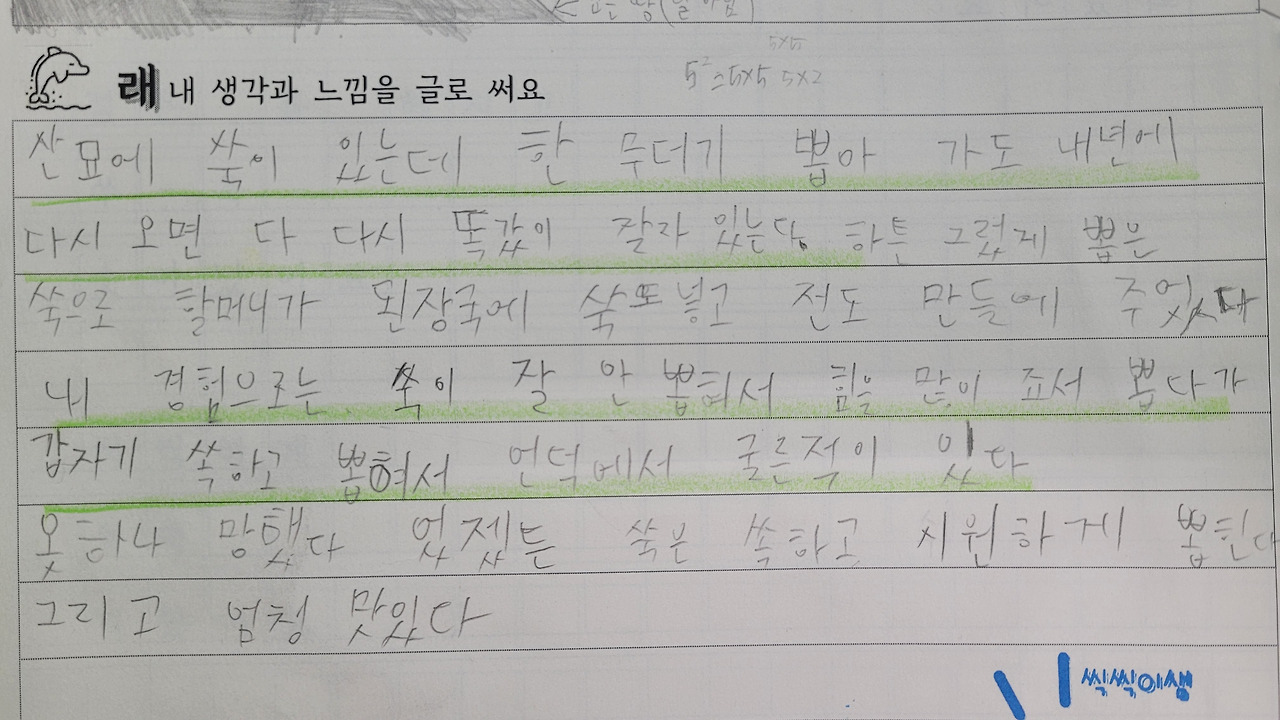 5×5
5²=5×5 5×2
래 내 생각과 느낌을 글로 써요
산묘에 쑥이 있는데 한 무더기 뽑아 가도 내년에
다시 오면 다 다시 똑같이 잘자 있는다. 하튼 그렇게 뽑은
쑥으로 할머니가 된장국에 쑥또 넣고 전도 만들에 주었다
내 경험으로는 쑥이 잘 안 뽑혀서 힘을 많이 죠서 뽑다가
갑자기 쏙하고 뽑혀서 언덕에서 굴른적이 있다
옷하나 망했다 었젰튼 쑥은 쏙하고 시원하게 뽑힌다
그리고 엄청 맛있다
씩씩이샘